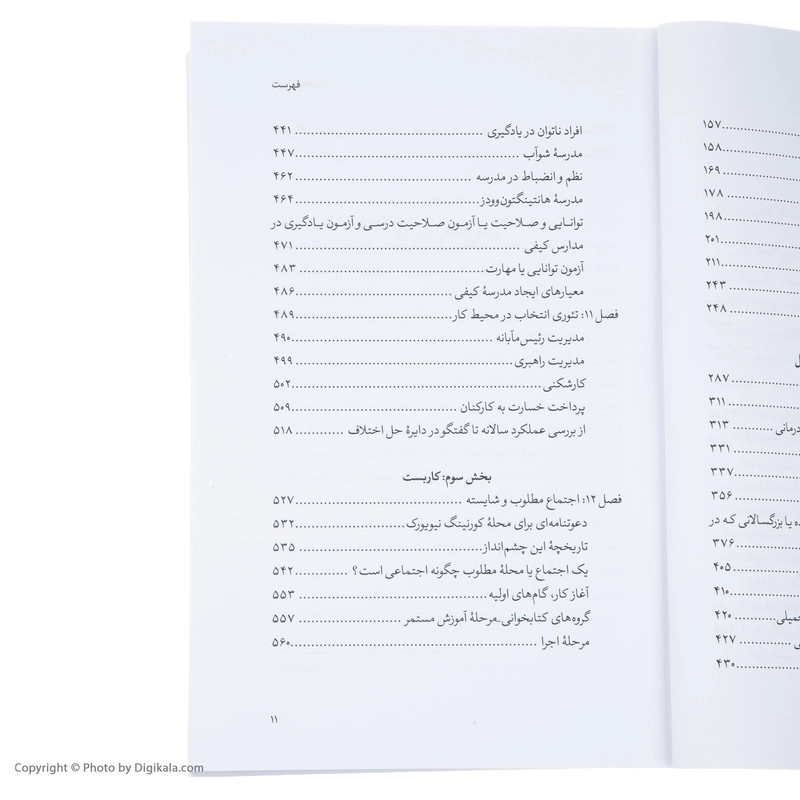 ۱۵۷
۱۵۸
۱۶۹
۱۷۸
۱۹۸
۲۰۱
۲۱۱
۲۴۳
۲۴۸
۲۸۷
۳۱۱
درمانی ۳۱۳
۳۳۱
۳۳۷
۳۵۶
ده یا بزرگسالانی که در
۳۷۶
۴۰۵
۴۱۰
۴۲۰
۴۲۷
۴۳۰
فهرست
افراد ناتوان در یادگیری ۴۴۱
مدرسهٔ شوآب ۴۴۷
نظم و انضباط در مدرسه ۴۶۲
مدرسهٔ هانتینگتون‌وودز ۴۶۴
توانایی و صلاحیت یا آزمون صلاحیت درسی و آزمون یادگیری در
مدارس کیفی ۴۷۱
آزمون توانایی یا مهارت ۴۸۳
معیارهای ایجاد مدرسهٔ کیفی ۴۸۶
فصل ۱۱: تئوری انتخاب در محیط کار ۴۸۹
مدیریت رئیس‌مآبانه ۴۹۰
مدیریت راهبری ۴۹۹
کارشکنی ۵۰۲
پرداخت خسارت به کارکنان ۵۰۹
از بررسی عملکرد سالانه تا گفتگو در دایرهٔ حل اختلاف ۵۱۸
بخش سوم: کاربست
فصل ۱۲: اجتماع مطلوب و شایسته ۵۲۷
دعوتنامه‌ای برای محلهٔ کورنینگ نیویورک ۵۳۲
تاریخچهٔ این چشم‌انداز ۵۳۵
یک اجتماع یا محلهٔ مطلوب چگونه اجتماعی است؟ ۵۴۲
آغاز کار، گام‌های اولیه ۵۵۳
گروه‌های کتابخوانی_مرحلهٔ آموزش مستمر ۵۵۷
مرحلهٔ اجرا ۵۶۰
۱۱
Copyright © Photo by Digikala.com